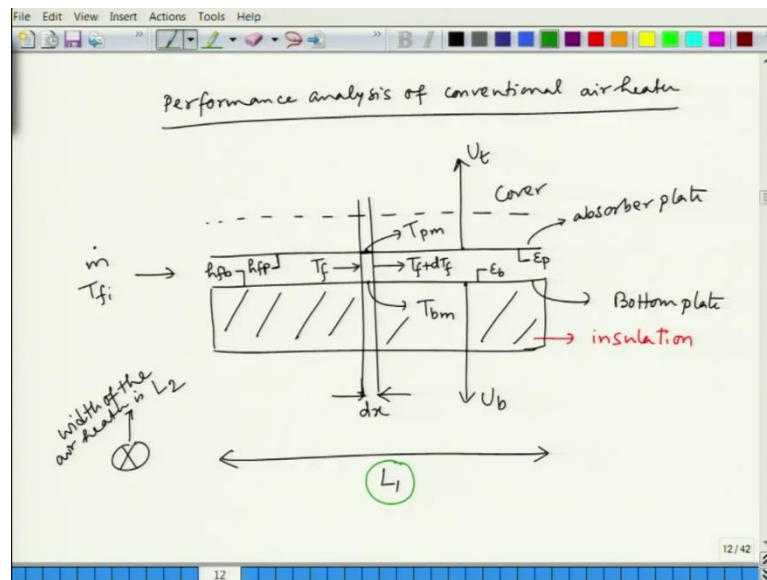 File Edit View Insert Actions Tools Help
B I
Performance analysis of conventional air heater
Ut
Cover
absorber plate
Tpm
ṁ
Tfi
hfb hfp Tf Tf+dTf εb εp
Tbm
Bottom plate
insulation
width of the
air heath is L2
dx
Ub
L1
12/42
12